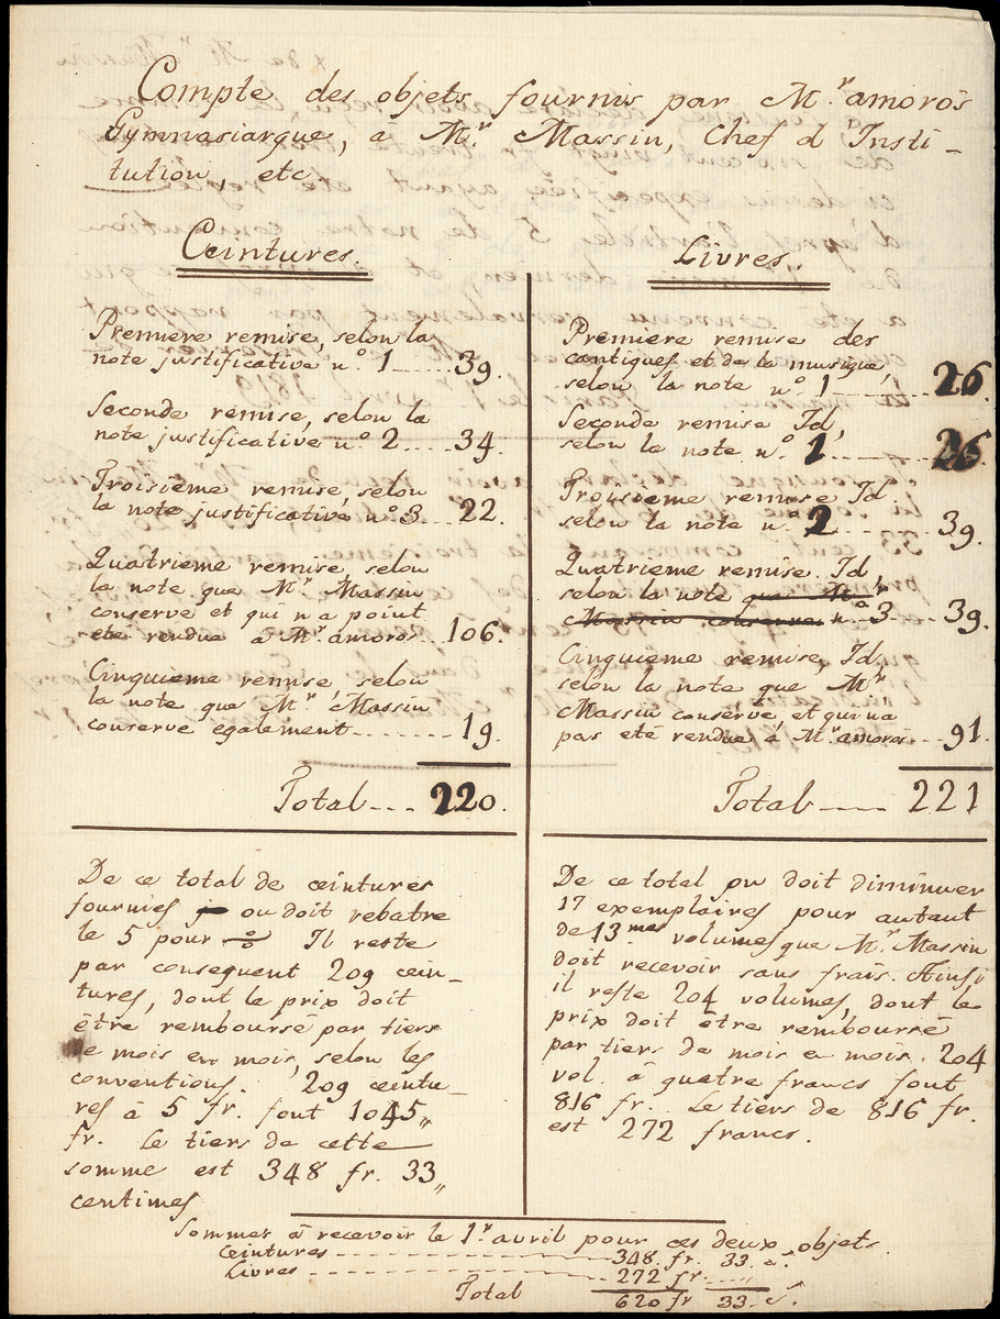 Compte des objets fournis par Mr. amoros
Gymnasiarque, à Mr. Massin, Chef d'Insti-
tution, etc.
Ceintures.
Premiere remise, selon la
note justificative n.º 1......39.
Seconde remise, selon la
note justificative n.º 2....34.
Troisieme remise, selon
la note justificative nº 3...22.
Quatrieme remise, selon
la note que Mr Massin
conserve et qui n'a point
eté rendue à Mr. amoros...106.
Cinquieme remise, selon
la note que Mr. Massin
conserve egalement........19.
Total.... 220.
Livres.
Premiere remise des
cantiques et de la musique,
selon la note nº 1.........26.
Seconde remise Id,
selon la note n.º 1.........26.
Troisieme remise Id.
selon la note n.º 2........39.
Quatrieme remise. Id,
selon la note que Mr
Massin conserve n.º 3.....39.
Cinquieme remise, Id.,
selon la note que Mr
Massin conserve, et qui n'a
pas eté rendue à Mr. amoros...91.
Total..... 221
De ce total de ceintures
fournies on doit rebatre
le 5 pour % Il reste
par consequent 209 cein-
tures, dont le prix doit
être remboursé par tiers
de mois en mois, selon les
conventions. 209 ceintu-
res à 5 fr. font 1045,,
fr. Le tiers de cette
somme est 348 fr. 33,,
centimes
De ce total on doit diminuer
17 exemplaires pour autant
de 13mes volumes que Mr. Massin
doit recevoir sans frais. Ainsi
il reste 204 volumes, dont le
prix doit être remboursé
par tiers de mois en mois. 204
vol. à quatre francs font
816 fr. Le tiers de 816 fr.
est 272 francs.
Sommes à recevoir le 1r. avril pour ces deux objets.
Ceintures.............348. fr. 33. c.
Livres................272 fr....,,
Total 620 fr 33. c.